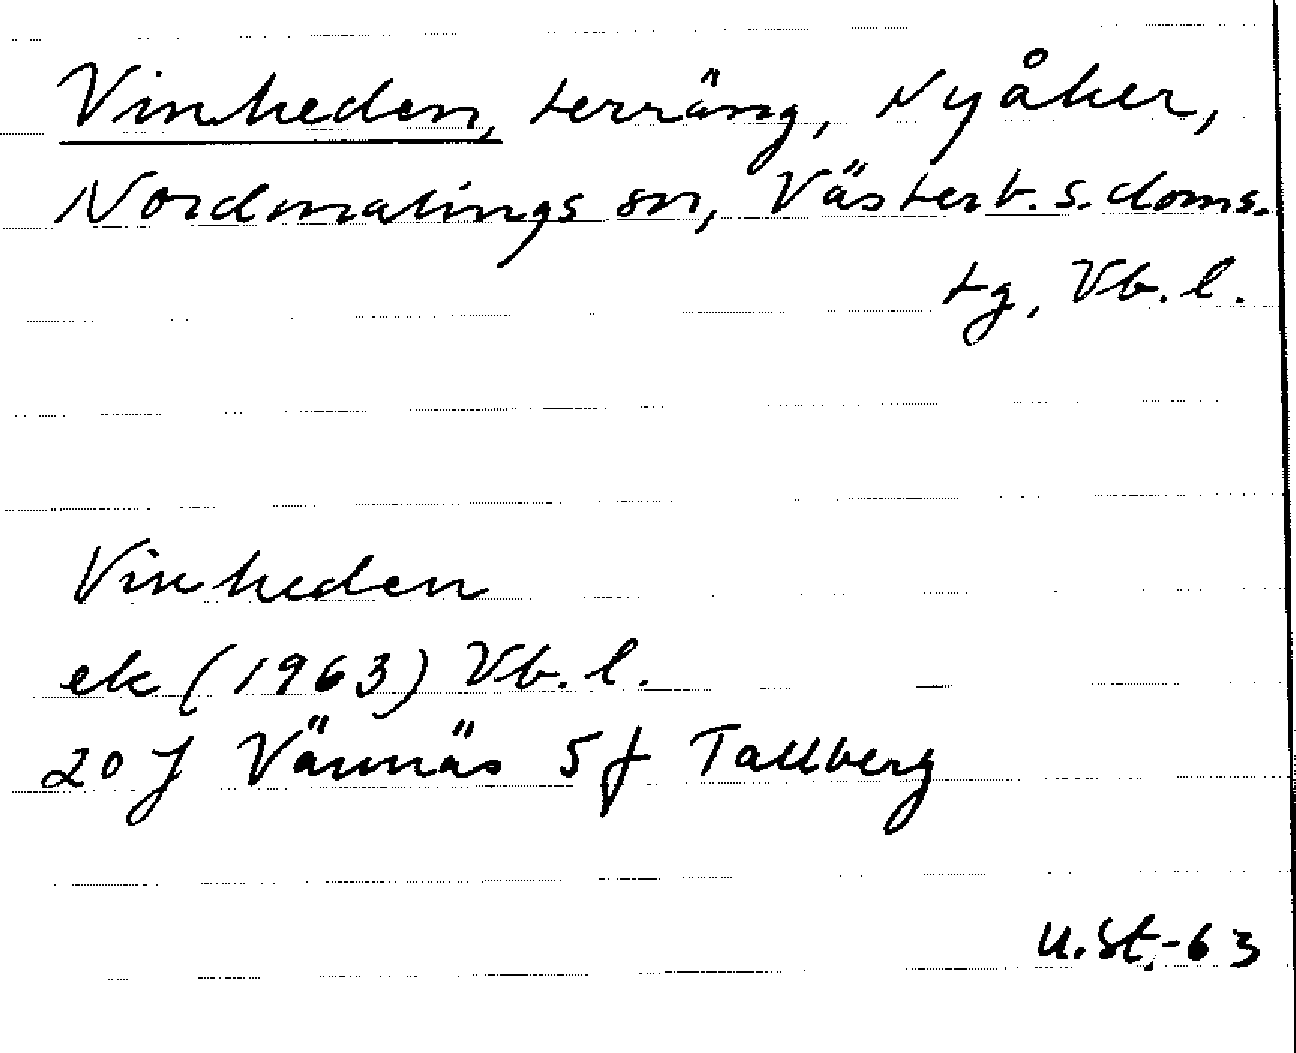 Vinheden, terräng, Nyåker,
Nordmalings sn, Västerb. s. doms.
tg, Vb. l.
Vinheden
ek (1963) Vb. l.
20 J Vännäs 5 f Tallberg
U. St. -63